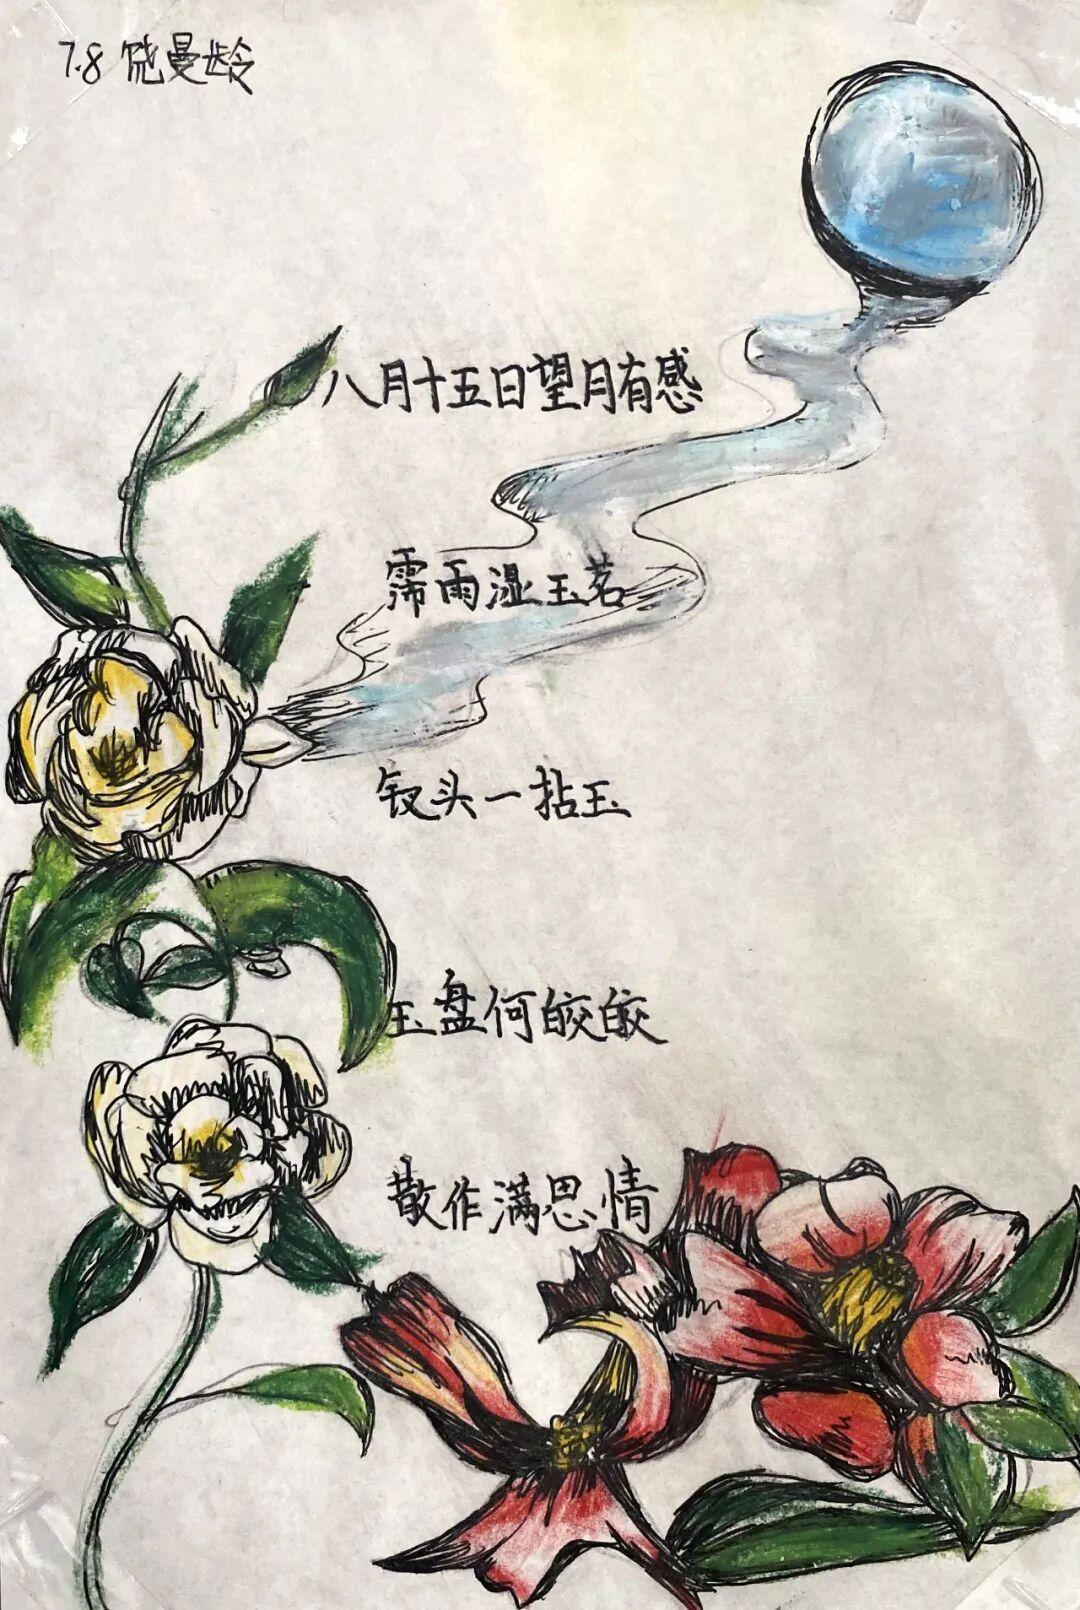 7.8 饶曼龄
八月十五日望月有感
霈雨湿玉茗
钗头一拈玉
玉盘何皎皎
散作满思情